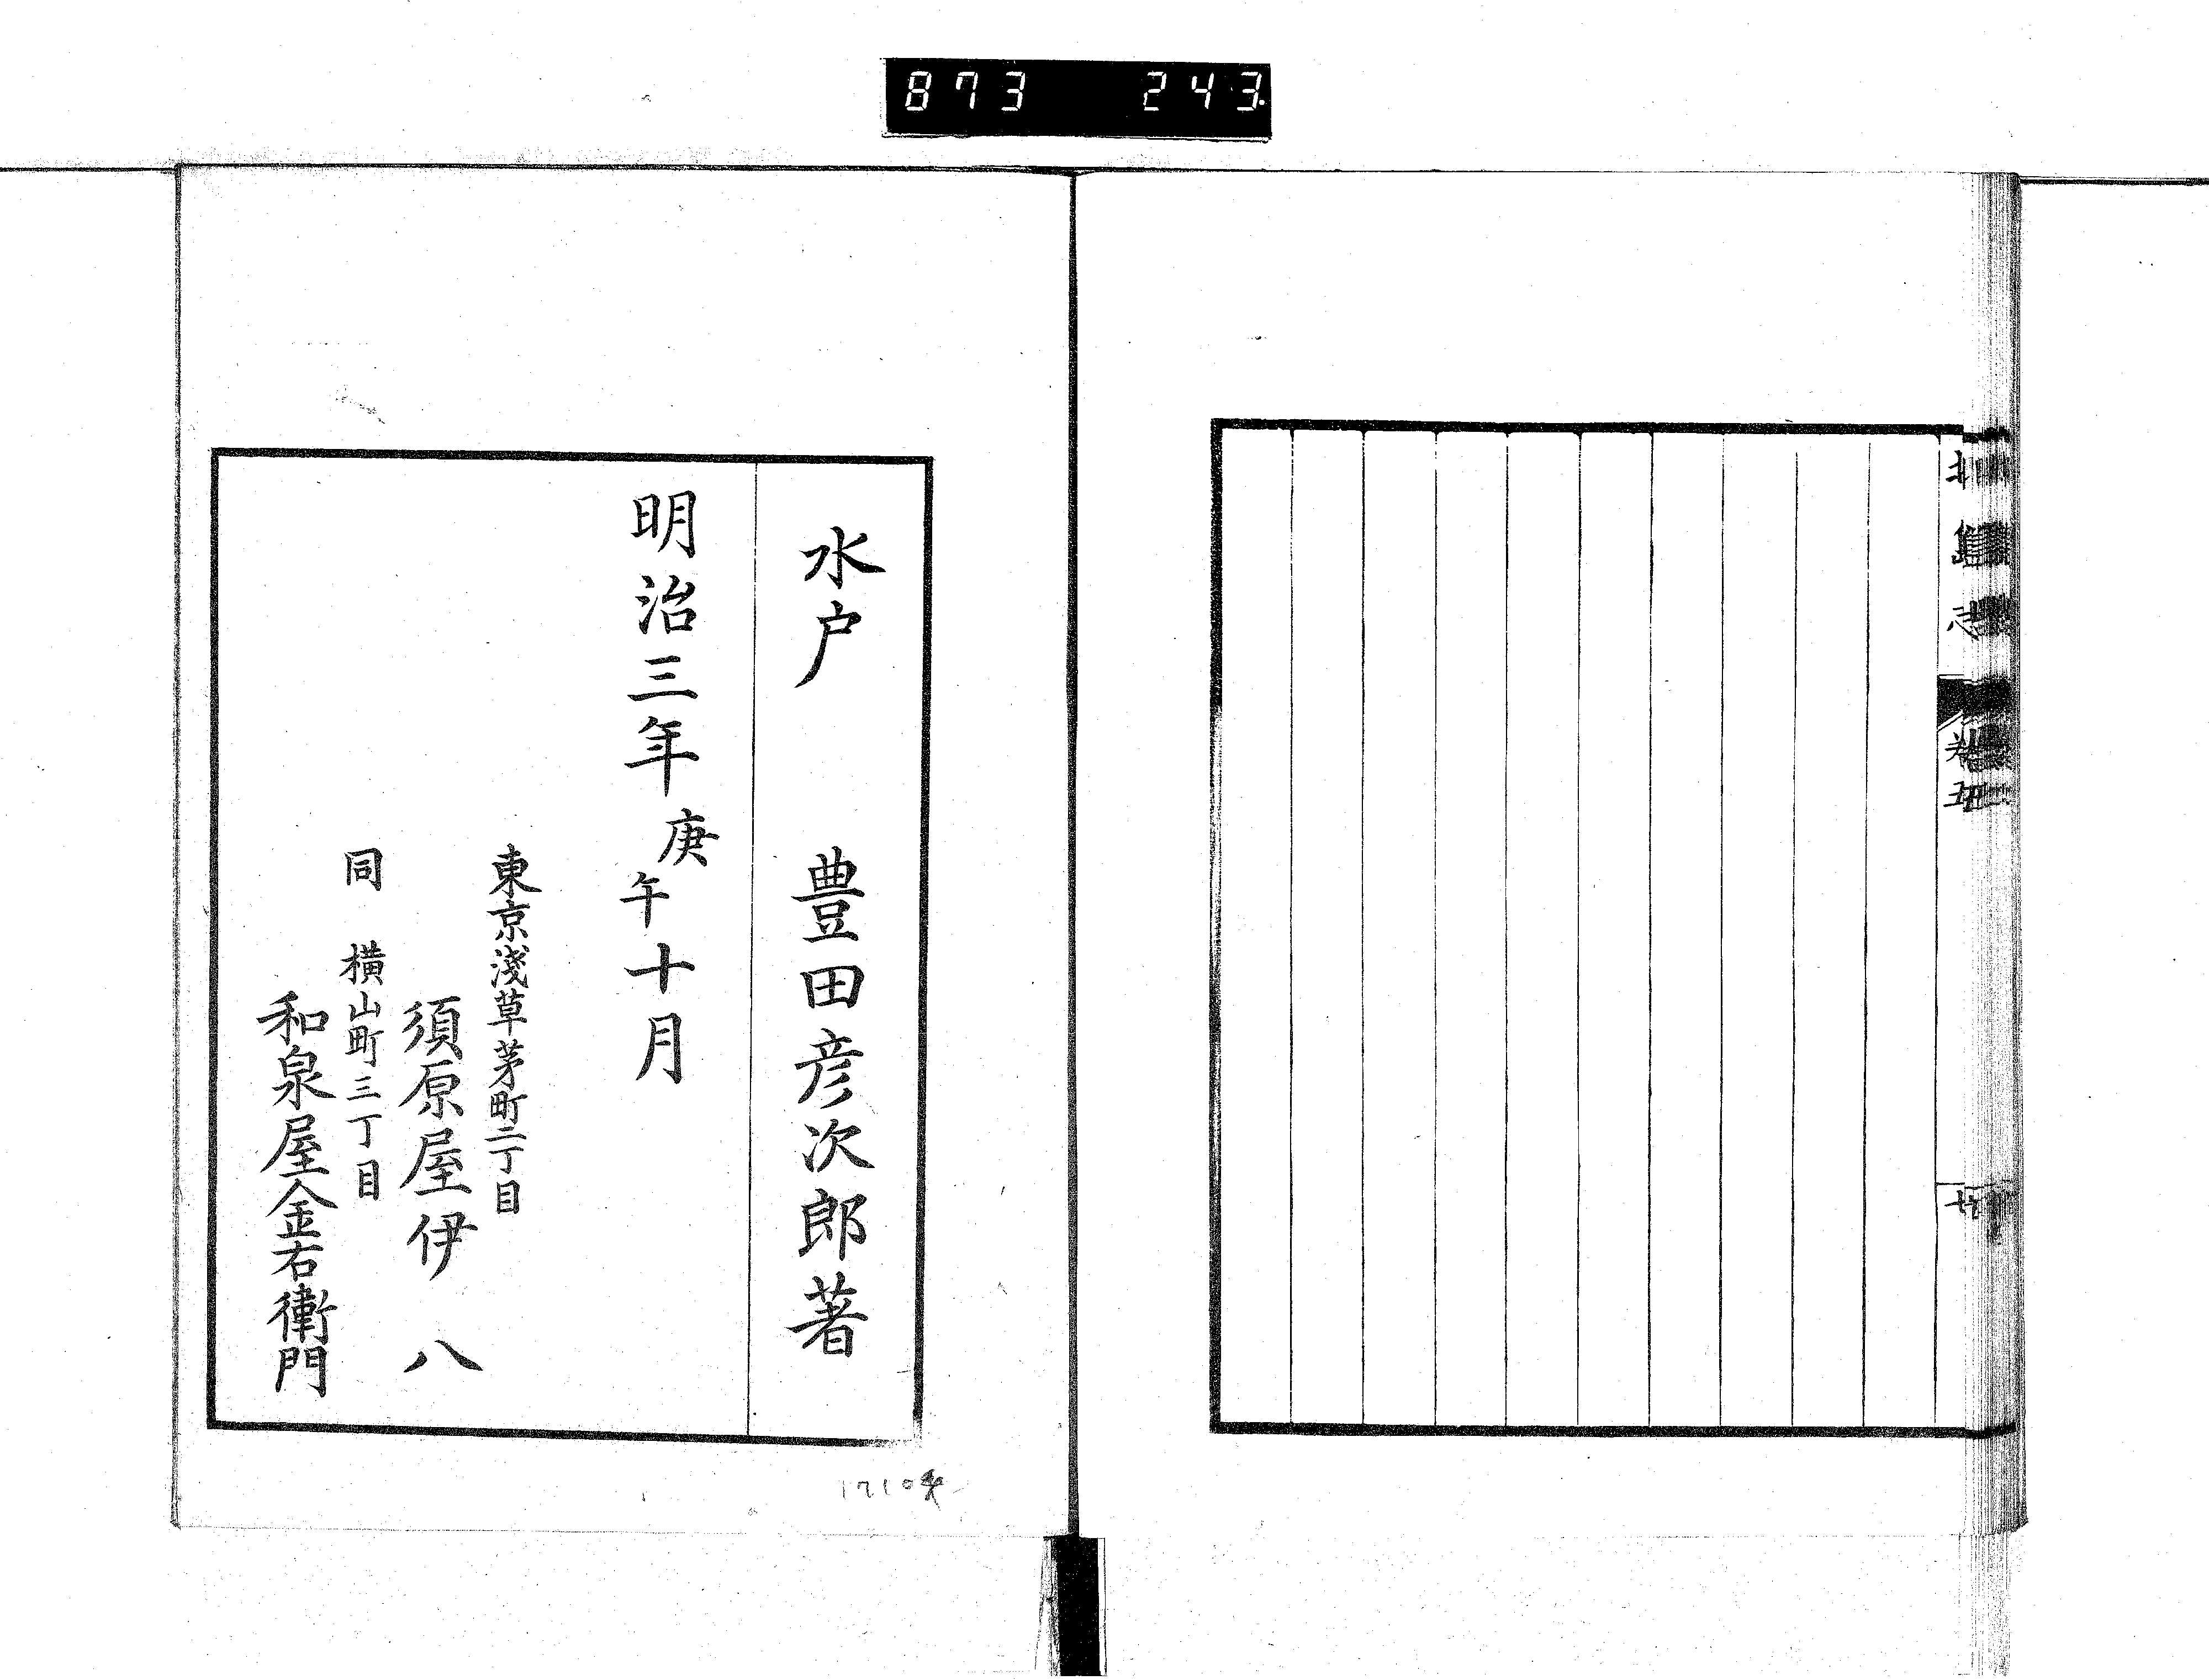 873 243.
水戸 豊田彦次郎著
明治三年庚午十月
東京淺草茅町二丁目
須原屋伊八
同 横山町三丁目
和泉屋金右衛門